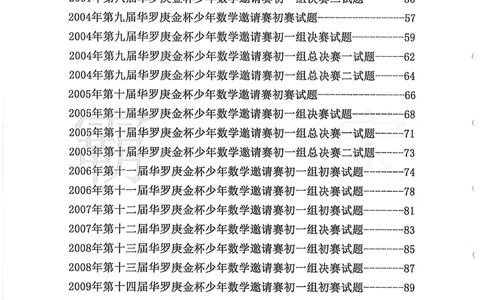 2004年第九届华罗庚金杯少年数学邀请赛初赛试题----------------57
2004年第九届华罗庚金杯少年数学邀请赛初一组决赛试题---------59
2004年第九届华罗庚金杯少年数学邀请赛初一组总决赛一试题----62
2004年第九届华罗庚金杯少年数学邀请赛初一组总决赛二试题----64
2005年第十届华罗庚金杯少年数学邀请赛初赛试题----------------66
2005年第十届华罗庚金杯少年数学邀请赛初一组决赛试题---------68
2005年第十届华罗庚金杯少年数学邀请赛初一组总决赛一试题----71
2005年第十届华罗庚金杯少年数学邀请赛初一组总决赛二试题----73
2006年第十一届华罗庚金杯少年数学邀请赛初一组初赛试题-------74
2006年第十一届华罗庚金杯少年数学邀请赛初一组决赛试题-------78
2007年第十二届华罗庚金杯少年数学邀请赛初一组初赛试题-------81
2007年第十二届华罗庚金杯少年数学邀请赛初一组决赛试题-------83
2008年第十三届华罗庚金杯少年数学邀请赛初一组初赛试题-------85
2008年第十三届华罗庚金杯少年数学邀请赛初一组决赛试题-------87
2009年第十四届华罗庚金杯少年数学邀请赛初一组初赛试题-------89